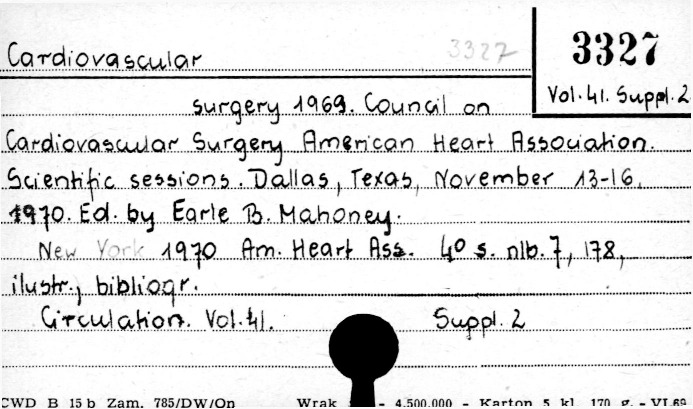 Cardiovascular 3327 3327
Vol. 41. Suppl. 2
surgery 1969. Council on
Cardiovascular Surgery American Heart Association.
Scientific sessions. Dallas, Texas, November 13-16,
1970. Ed. by Earle B. Mahoney.
New York 1970 Am. Heart Ass. 4° s. nlb. 7, 178,
ilustr., bibliogr.
Circulation. Vol. 41. Suppl. 2
CWD B 15 b Zam. 785/DW/Op Wrak - 4.500.000 - Karton 5 kl. 170 g. - VI.69